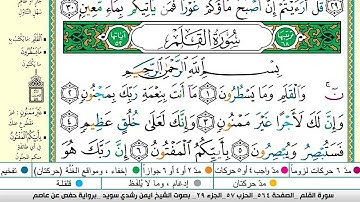 قُلْ أَرَءَيْتُمْ إِنْ أَصْبَحَ مَاؤُكُمْ غَوْرًا فَمَن يَأْتِيكُم بِمَآءٍ مَّعِينٍ ٣٠
سُورَةُ القَلَمِ
بِسْمِ اللَّهِ الرَّحْمَٰنِ الرَّحِيمِ
نٓ ۚ وَالْقَلَمِ وَمَا يَسْطُرُونَ ١ مَآ أَنتَ بِنِعْمَةِ رَبِّكَ بِمَجْنُونٍ ٢
وَإِنَّ لَكَ لَأَجْرًا غَيْرَ مَمْنُونٍ ٣ وَإِنَّكَ لَعَلَىٰ خُلُقٍ عَظِيمٍ ٤
فَسَتُبْصِرُ وَيُبْصِرُونَ ٥ بِأَييِّكُمُ الْمَفْتُونُ ٦ إِنَّ رَبَّكَ هُوَ
تفخيم إخفاء، ومواقع الغُنَّة (حركتان) مدّ ٢ أو ٤ أو ٦ جوازاً مدّ واجب ٤ أو ٥ حركات مدّ ٦ حركات لزوماً
قلقلة إدغام، وما لا يُلفَظ مدّ حركتان
سورة القلم _الصفحة ٥٦٤ _الحزب ٥٧ _الجزء ٢٩ _بصوت الشيخ ايمن رشدي سويد _برواية حفص عن عاصم